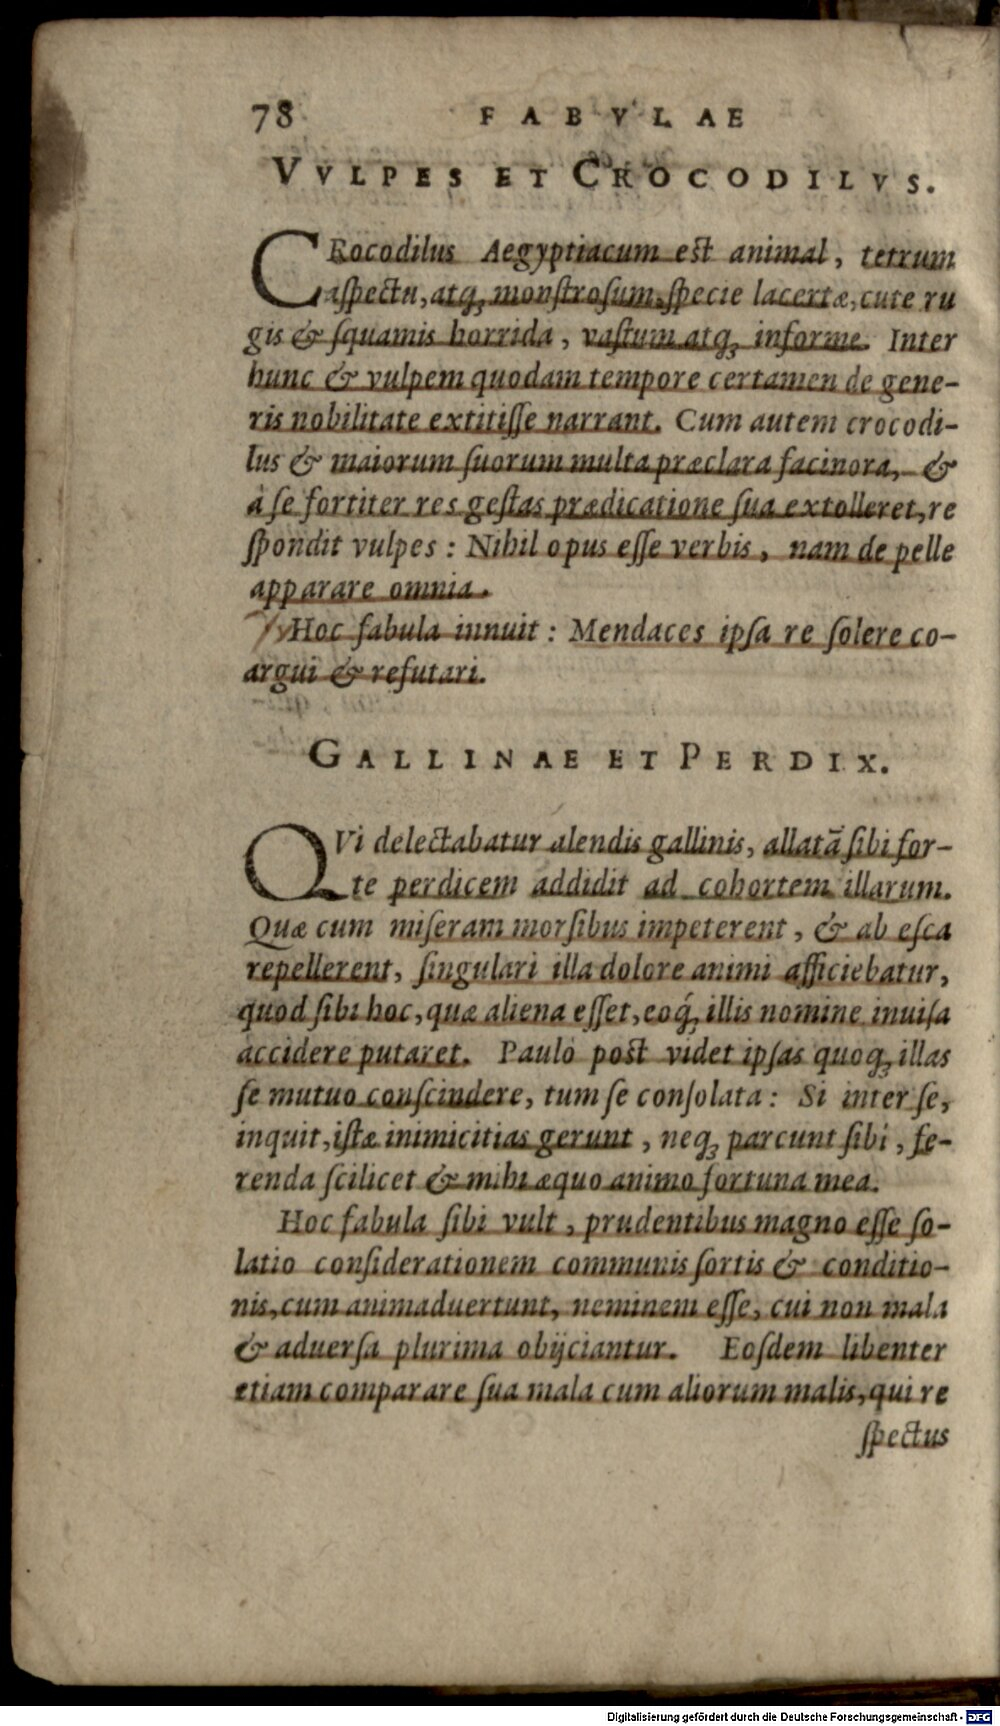 78 FABVLAE
VVLPES ET CROCODILVS.
CRocodilus Aegyptiacum est animal, tetrum
aſpectu, atq; monſtroſum, ſpecie lacertæ, cute ru
gis & ſquamis horrida, vaſtum atq; informe. Inter
hunc & vulpem quodam tempore certamen de gene-
ris nobilitate extitiſſe narrant. Cum autem crocodi-
lus & maiorum ſuorum multa præclara facinora, &
à ſe fortiter res geſtas prædicatione ſua extolleret, re
ſpondit vulpes: Nihil opus eſſe verbis, nam de pelle
apparare omnia.
Hoc fabula innuit: Mendaces ipſa re ſolere co-
argui & refutari.
GALLINAE ET PERDIX.
QVi delectabatur alendis gallinis, allatā ſibi for-
te perdicem addidit ad cohortem illarum.
Quæ cum miſeram morſibus impeterent, & ab eſca
repellerent, ſingulari illa dolore animi afficiebatur,
quod ſibi hoc, quæ aliena eſſet, eoq́; illis nomine inuiſa
accidere putaret. Paulò pòst videt ipſas quoq; illas
ſe mutuo conſcindere, tum ſe conſolata: Si inter ſe,
inquit, iſtæ inimicitias gerunt, neq; parcunt ſibi, fe-
renda ſcilicet & mihi æquo animo fortuna mea.
Hoc fabula ſibi vult, prudentibus magno eſſe ſo-
latio conſiderationem communis ſortis & conditio-
nis, cum animaduertunt, neminem eſſe, cui non mala
& aduerſa plurima obijciantur. Eoſdem libenter
etiam comparare ſua mala cum aliorum malis, qui re
ſpectus
Digitalisierung gefördert durch die Deutsche Forschungsgemeinschaft - DFG